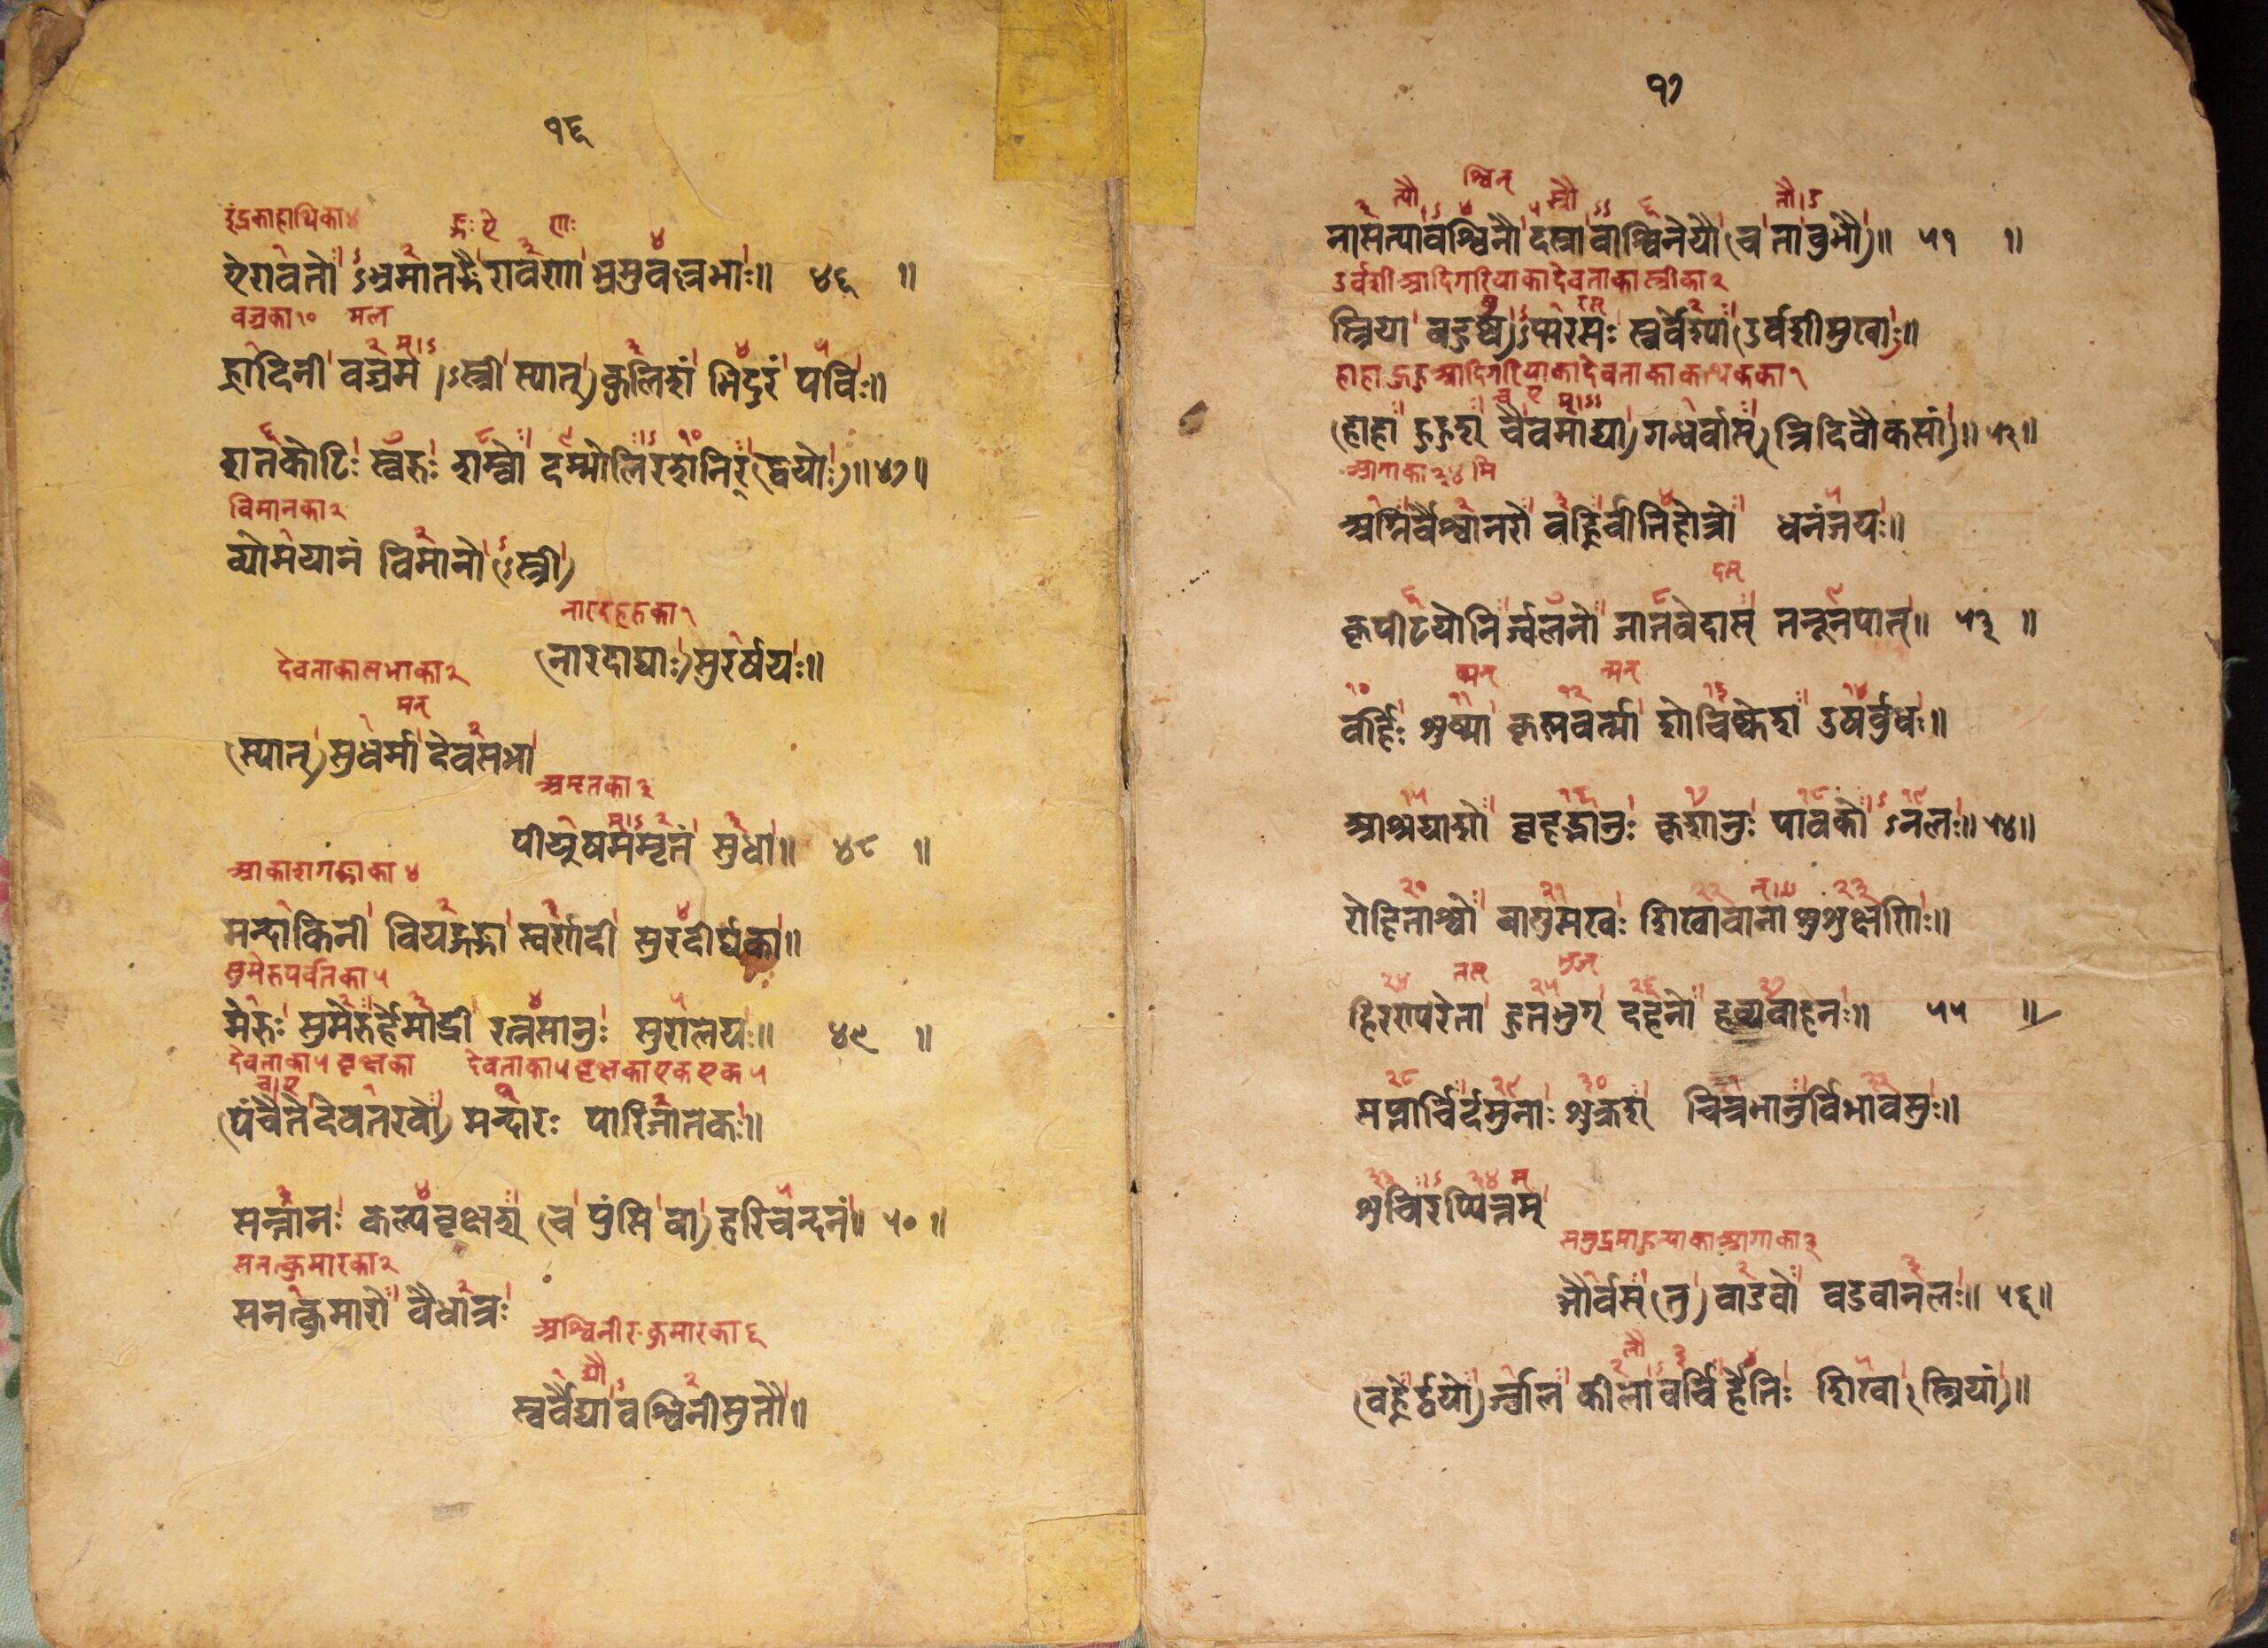 १६
इंद्रका हाथिका ४
ऐरावतो ऽभ्रमातङ्गैरावणा भ्रमुवल्लभाः॥ ४६ ॥
वज्रका १० मल
ह्रादिनी वज्रम (ऽस्त्री स्यात्) कुलिशं भिदुरं पविः॥
शतकोटिः स्वरुः शम्बो दम्भोलिरशनिर् (द्वयोः)॥ ४७ ॥
विमानका २
व्योमयानं विमानो (ऽस्त्री)
नारदहरुका १
(नारदाद्याः) सुरर्षयः॥
देवताका सभाका २
मन्
(स्यात्) सुधर्मा देवसभा
अमृतका ३
पीयूषममृतं सुधा॥ ४८ ॥
आकाशगङ्गाका ४
मन्दाकिनी वियद्गङ्गा स्वर्णदी सुरदीर्घिका॥
सुमेरुपर्वतका ५
मेरुः सुमेरुर्हेमाद्री रत्नसानुः सुरालयः॥ ४९ ॥
देवताका ५ वृक्षका देवताका ५ वृक्षका एक एक ५
(पंचैते देवतरवो) मन्दारः पारिजातकः॥
सन्तानः कल्पवृक्षश् (च पुंसि वा) हरिचन्दनं॥ ५० ॥
सनत्कुमारका २
सनत्कुमारो वैधात्रः
अश्विनीर कुमारका ६
स्वर्वैद्यावश्विनीसुतौ॥
१७
नासत्यावश्विनौ दस्रावाश्विनेयौ (च तावुभौ)॥ ५१ ॥
उर्वशी आदि गरियाका देवताका स्त्रीका २
स्त्रियां बहुष्व) ऽप्सरसः स्वर्वेश्या (उर्वशीमुखाः)॥
हाहा हूहू आदि गरियाका देवताका कत्थकका १
(हाहा हूहूश् चैवमाद्या) गन्धर्वास् (त्रिदिवौकसां)॥ ५२ ॥
आगाका ३४ मि
अग्निर्वैश्वानरो वह्निर्वीतिहोत्रो धनंजयः॥
कृपीटयोनिर्ज्वलनो जातवेदास् तनूनपात्॥ ५३ ॥
बर्हिः शुष्मा कृष्णवर्त्मा शोचिष्केश उषर्बुधः॥
आश्रयाशो बृहद्भानुः कृशानुः पावको ऽनलः॥ ५४ ॥
रोहिताश्वो वायुसखः शिखावाना शुशुक्षणिः॥
हिरण्यरेता हुतभुग् दहनो हव्यवाहनः॥ ५५ ॥
सप्तार्चिर्दमुनाः शुक्रश् चित्रभानुर्विभावसुः॥
शुचिरप्पित्तम्
समुद्रमा हुन्याका आगाका ३
और्वस् (तु) वाडवो वडवानलः॥ ५६ ॥
(वह्नेर्द्वयो) र्ज्वाल कीलावर्चिर्हेतिः शिखा (स्त्रियां)॥